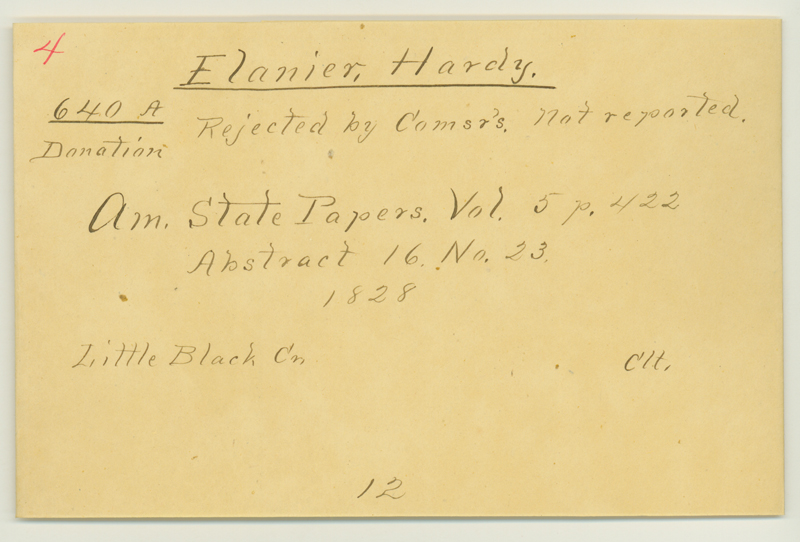 4
Elanier, Hardy.
640 A
Rejected by Comsr's. Not reported.
Donation
Am. State Papers. Vol. 5 p. 422
Abstract 16. No. 23.
1828
Little Black Cr.
Clt.
12